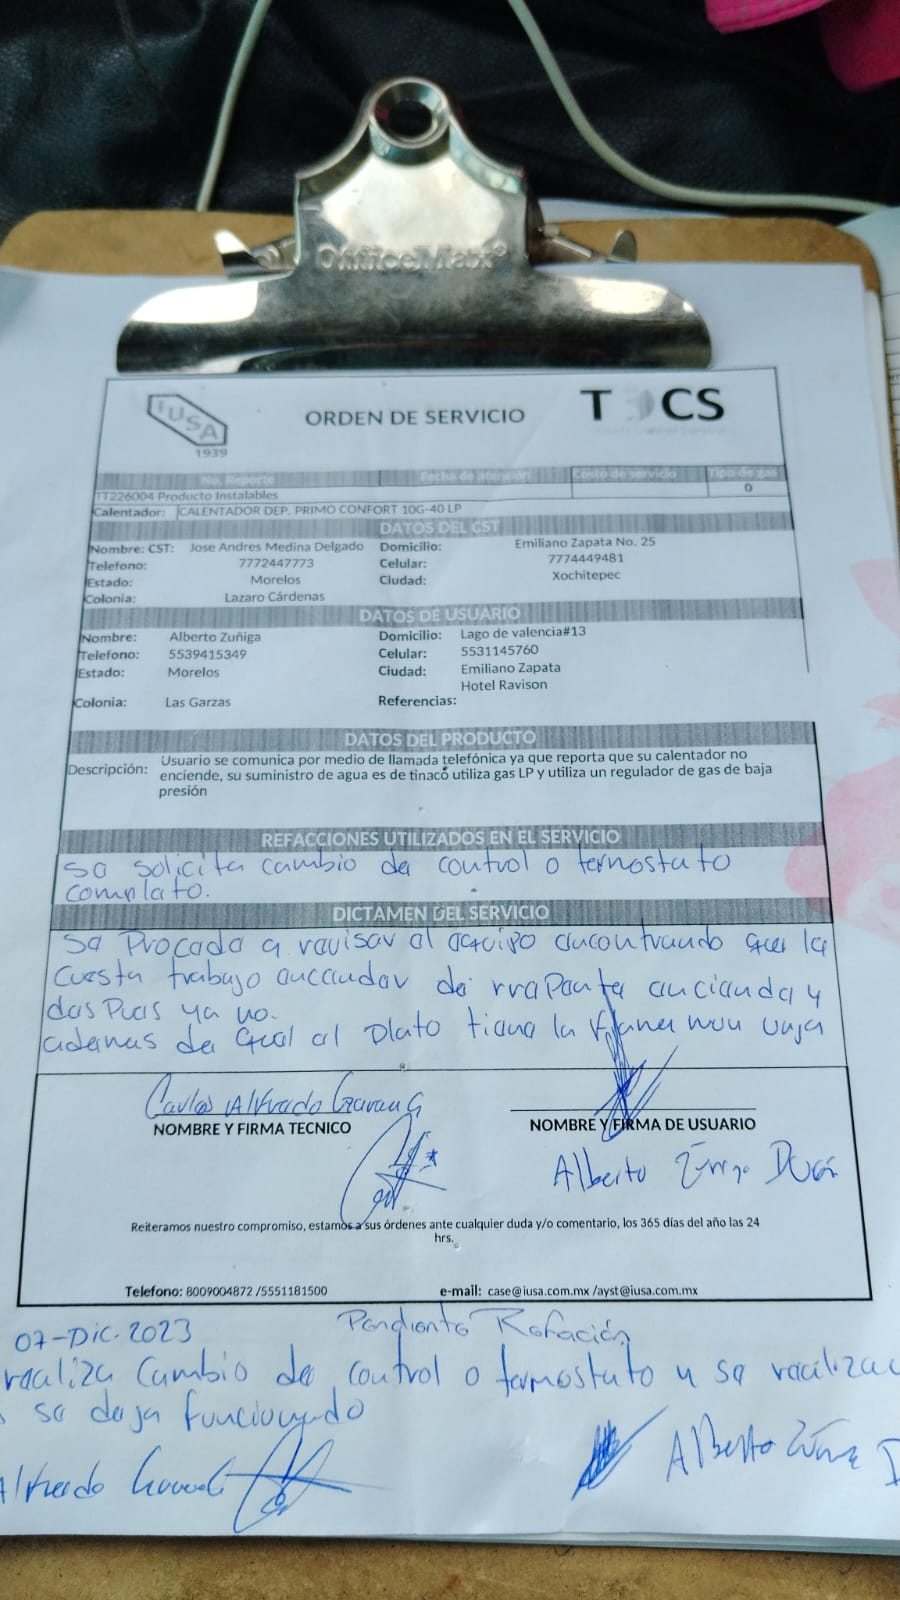 OfficeMax®
IUSA
1939
ORDEN DE SERVICIO
T CS
No. Reporte Fecha de atención Costo de servicio Tipo de gas
TT226004 Producto Instalables 0
Calentador: CALENTADOR DEP. PRIMO CONFORT 10G-40 LP
DATOS DEL CST
Nombre: CST: Jose Andres Medina Delgado Domicilio: Emiliano Zapata No. 25
Telefono: 7772447773 Celular: 7774449481
Estado: Morelos Ciudad: Xochitepec
Colonia: Lazaro Cárdenas
DATOS DE USUARIO
Nombre: Alberto Zuñiga Domicilio: Lago de valencia#13
Telefono: 5539415349 Celular: 5531145760
Estado: Morelos Ciudad: Emiliano Zapata
Hotel Ravison
Colonia: Las Garzas Referencias:
DATOS DEL PRODUCTO
Descripción: Usuario se comunica por medio de llamada telefónica ya que reporta que su calentador no
enciende, su suministro de agua es de tinaco utiliza gas LP y utiliza un regulador de gas de baja
presión
REFACCIONES UTILIZADOS EN EL SERVICIO
se solicita cambio de control o termostato
completo.
DICTAMEN DEL SERVICIO
se Procede a revisar el equipo encontrando que le
cuesta trabajo encender de rrepente enciende y
desPues ya no.
ademas de que el Plato tiene la
Carlos Alfredo
NOMBRE Y FIRMA TECNICO NOMBRE Y FIRMA DE USUARIO
Alberto
Reiteramos nuestro compromiso, estamos a sus órdenes ante cualquier duda y/o comentario, los 365 días del año las 24
hrs.
Telefono: 8009004872 /5551181500 e-mail: case@iusa.com.mx /ayst@iusa.com.mx
Pendiente Refación
07-Dic-2023
realiza Cambio de control o termostato y se
se deja funcionando
Alfredo Alberto